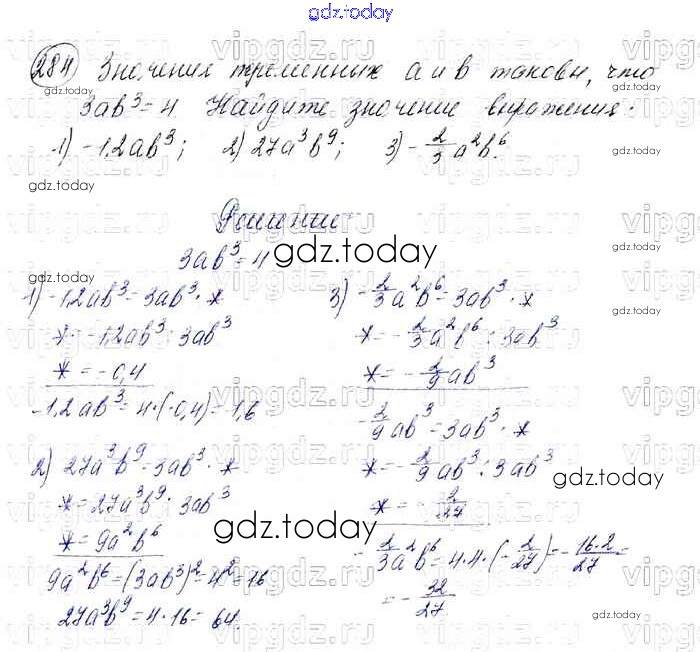 gdz.today
284 Значения переменных a и b таковы, что
3ab³ = 4 Найдите значение выражения:
1) -1,2ab³; 2) 27a³b⁹; 3) -2/3a²b⁶.
gdz.today
Решение
3ab³ = 4
gdz.today
1) -1,2ab³ = 3ab³ · *
* = -1,2ab³ : 3ab³
* = -0,4
-1,2ab³ = 4·(-0,4) = -1,6
2) 27a³b⁹ = 3ab³ · *
* = 27a³b⁹ : 3ab³
* = 9a²b⁶
9a²b⁶ = (3ab³)² = 4² = 16
27a³b⁹ = 4·16 = 64.
3) -2/3a²b⁶ = 3ab³ · *
* = -2/3a²b⁶ : 3ab³
* = -2/9ab³
-2/9ab³ = 3ab³ · *
* = -2/9ab³ : 3ab³
* = -2/27
-2/3a²b⁶ = 4·4·(-2/27) = -16·2/27 =
= -32/27
gdz.today
vipgdz.ru